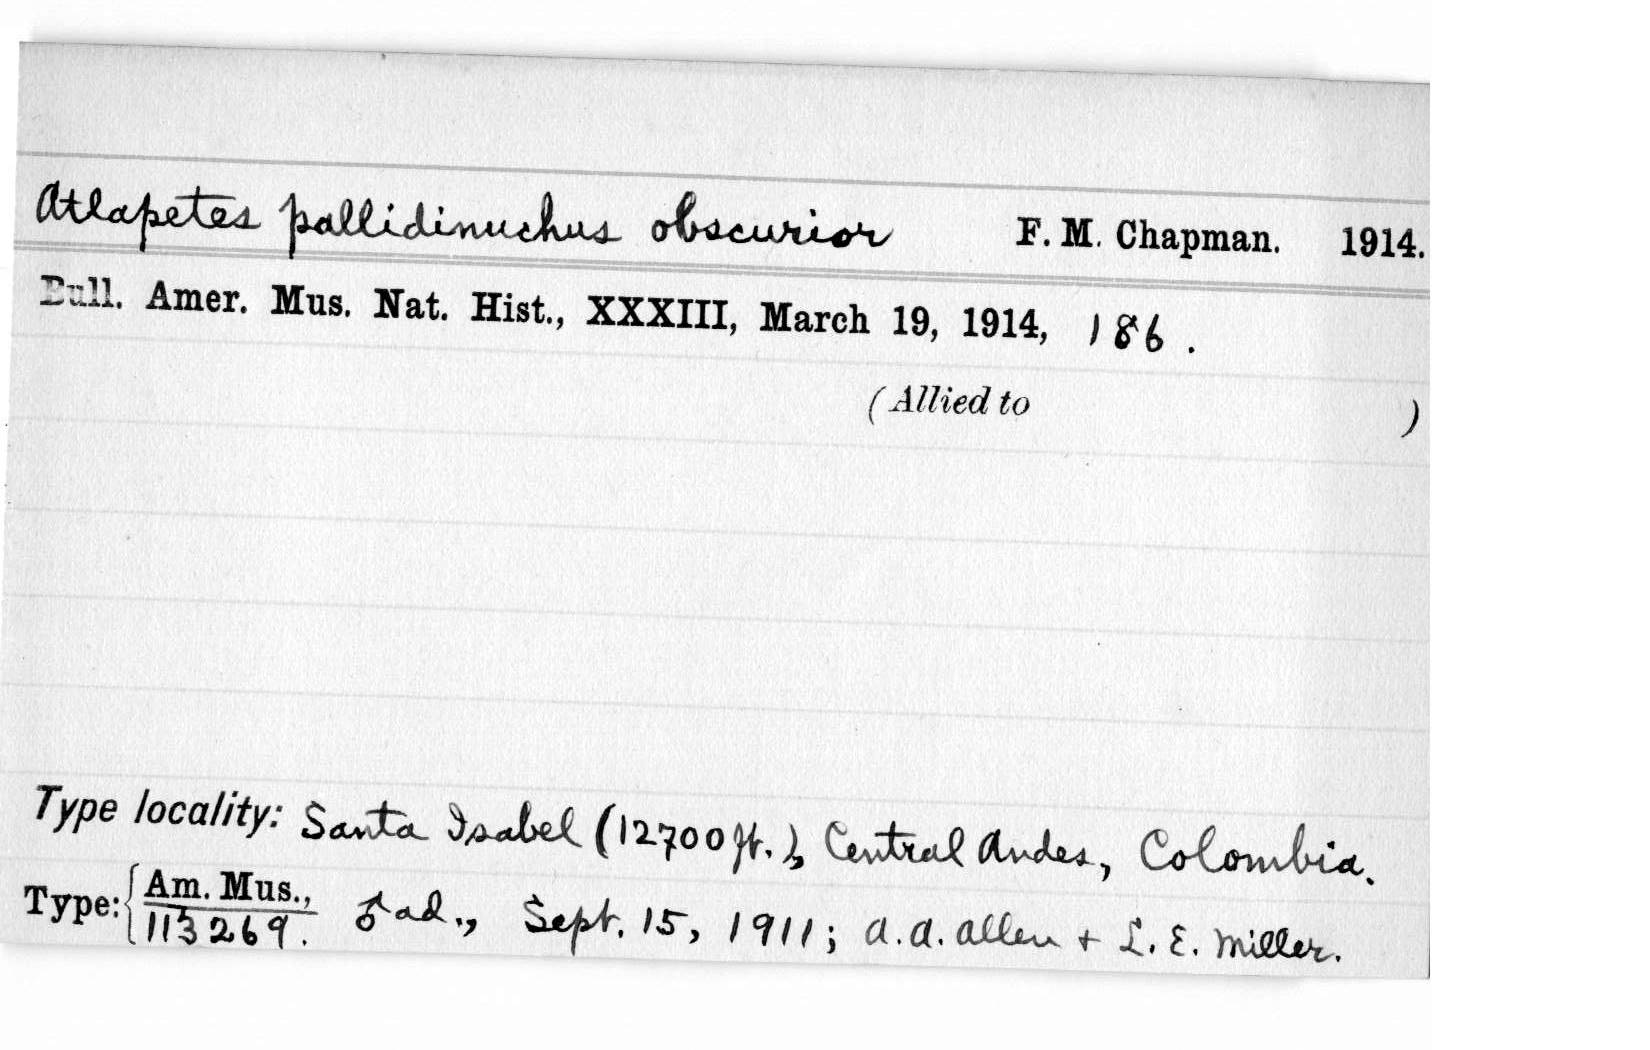 Atlapetes pallidinuchus obscurior F. M. Chapman. 1914.
Bull. Amer. Mus. Nat. Hist., XXXIII, March 19, 1914, 186.
(Allied to )
Type locality: Santa Isabel (12700 ft.), Central Andes, Colombia.
Type: { Am. Mus.,
113269. ♂ ad., Sept. 15, 1911; A. A. Allen + L. E. Miller.